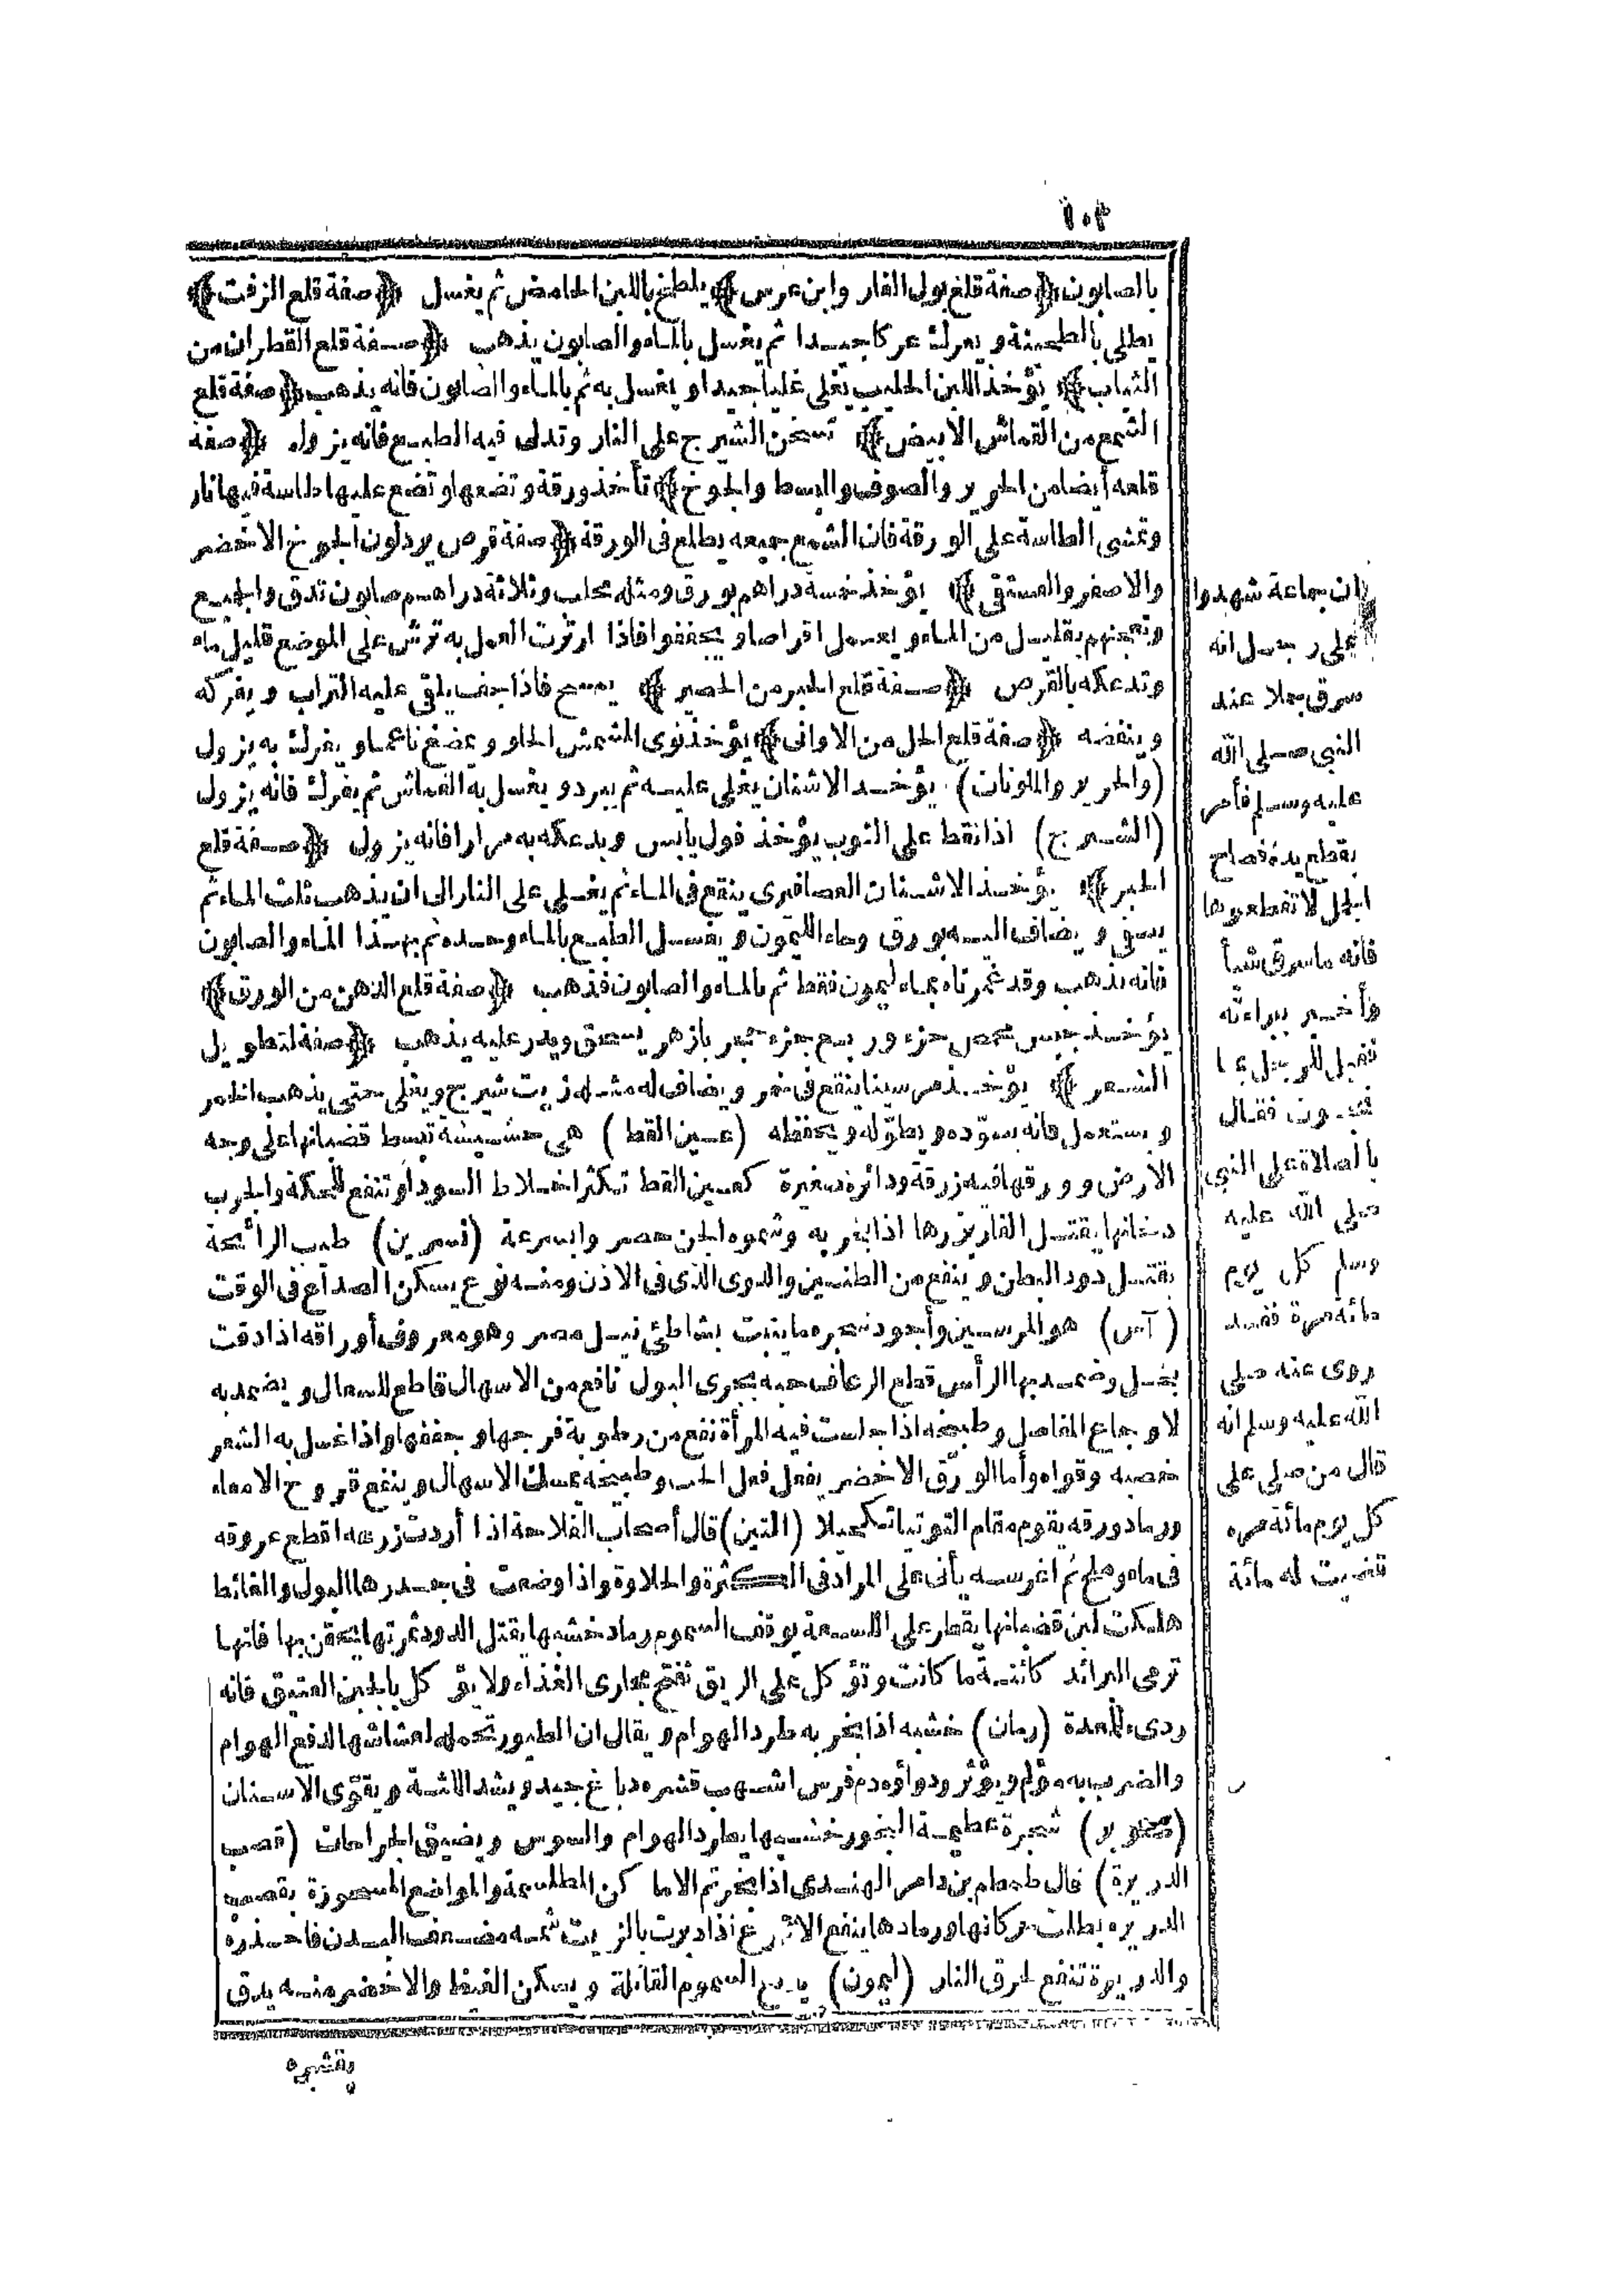 ١٠٣
بالصابون ﴿صفة قلع بول الفار وابن عرس﴾ يلطخ باللبن الحامض ثم يغسل ﴿صفة قلع الزفت﴾
يطلى بالطحينة ويعرك عركا جيدا ثم يغسل بالماء والصابون يذهب ﴿صفة قلع القطران من
الثياب﴾ يؤخذ اللبن الحليب يغلى غليا جيدا ويغسل به ثم بالماء والصابون فانه يذهب ﴿صفة قلع
الشمع من القماش الابيض﴾ تسخن الشيرج على النار وتدلى فيه الطبع فانه يزول ﴿صفة
قلعه أيضا من الحرير والصوف والبسط والجوخ﴾ تأخذ ورقة وتضعها وتضع عليها طاسة فيها نار
وتمشى الطاسة على الورقة فان الشمع جميعه يطلع فى الورقة ﴿صفة قرص يرد لون الجوخ الاخضر
والاصفر والفستقى﴾ يؤخذ خمسة دراهم بورق ومثله محلب وثلاثة دراهم صابون تدق والجميع
وتعجنهم بقليل من الماء ويعمل اقراصا ويجففوا فاذا اردت العمل به ترش على الموضع قليل ماء
وتدعكه بالقرص ﴿صفة قلع الحبر من الحصير﴾ يمسح فاذا جف يلقى عليه التراب ويفركه
وينفضه ﴿صفة قلع الحل من الاوانى﴾ يؤخذ نوى المشمش الحلو ويمضغ ناعما ويفرك به يزول
(والحرير والملونات) يؤخذ الاشنان يغلى عليه ثم يبرد ويغسل به القماش ثم يفرك فانه يزول
(الشيرج) اذا نقط على الثوب يؤخذ فول يابس ويدعكه به مرارا فانه يزول ﴿صفة قلع
الحبر﴾ يؤخذ الاشنان العصافيرى ينقع فى الماء ثم يغلى على النار الى ان يذهب ثلث الماء ثم
يصفى ويضاف اليه بورق وماء الليمون ويغسل الطبع بالماء وحده ثم بهذا الماء والصابون
فانه يذهب وقد غمرناه بماء ليمون فقط ثم بالماء والصابون فذهب ﴿صفة قلع الدهن من الورق﴾
يؤخذ جبس محمص جزء وربع جزء حجر بازهر يسحق ويدر عليه يذهب ﴿صفة لتطويل
الشعر﴾ يؤخذ مرسينا ينقع فى خمر ويضاف له مثله زيت شيرج ويغلى حتى يذهب الخمر
ويستعمل فانه يسوّده ويطوّله ويحفظه (عين القط) هى حشيشة تبسط قضبانها على وجه
الارض وورقها فيه زرقة ودائرة صغيرة كعين القط تكثر اخلاط السوداء وتنفع للحكة والجرب
دخانها يقتل الفار بزرها اذا بخر به وشموه الجن حصروا بسرعة (نسرين) طيب الرائحة
يقتل دود البطن وينفع من الطنين والدوى الذى فى الاذن ومنه نوع يسكن الصداع فى الوقت
(آس) هو المرسين وأجود شجره ما ينبت بشاطئ نيل مصر وهو معروف أوراقه اذا دقت
بخل وضمد بها الرأس قطع الرعاف حبه يجرى البول نافع من الاسهال قاطع للسعال ويضمد به
لاوجاع المفاصل وطبيخه اذا جلست فيه المرأة نفع من رطوبة فرجها وجففها واذا غسل به الشعر
خصبه وقواه وأما الورق الاخضر يفعل فعل الحب وطبيخه يمسك الاسهال وينفع قروح الامعاء
ورماد ورقه يقوم مقام التوتيا تكحيلا (التين) قال أصحاب الفلاحة اذا أردت زرعه اقطع عروقه
فى ماء وملح ثم اغرسه يأتى على المراد فى الكثرة والحلاوة واذا وضعت فى جدرها البول والغائط
هلكت لبن قضبانها يقطر على اللسعة يوقف السموم رماد خشبها يقتل الدود ثمرتها يحقن بها فانها
ترمى البرائد كائنة ما كانت وتؤكل على الريق تفتح مجارى الغذاء ولا يؤكل بالجبن العتيق فانه
ردىء للمعدة (رمان) خشبه اذا بخر به طرد الهوام ويقال ان الطيور تحمله لعشاشها لدفع الهوام
والضرب به مؤلم ويؤثر ودواؤه دم فرس اشهب قشره دباغ جيد ويشد اللثة ويقوّى الاسنان
(صنوبر) شجرة عظيمة البخور خشبها يطرد الهوام والسوس ويضيق الجراحات (قصب
الدريرة) قال طمطم بن دامر الهندى اذا بخرتم الاماكن المطلسمة والمواضع المسحورة بقصب
الدريره بطلت حركاتها ورمادها ينفع اذا دبرت بالزيت شمه مضعف البدن فاحذره
والدريرة تنفع لحرق النار (ليمون) السموم القاتلة ويسكن الغيظ والاخضر منه يدق
بقشره
ان جماعة شهدوا
على رجل انه
سرق جملا عند
النبى صلى الله
عليه وسلم فأمر
بقطع يده فصاح
الجمل لا تقطعوها
فانه ما سرق شيأ
وأخبر ببراءته
فقيل للرجل بما
نجوت فقال
بالصلاة على النبى
صلى الله عليه
وسلم كل يوم
مائة مرة فقد
روى عنه صلى
الله عليه وسلم انه
قال من صلى على
كل يوم مائة مره
قضيت له مائة